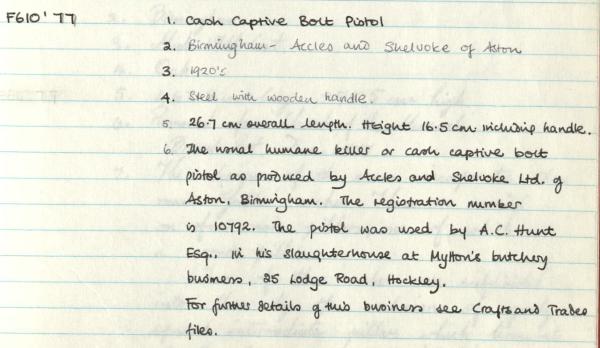 F610'77 1. Cash Captive Bolt Pistol
2. Birmingham - Accles and Shelvoke of Aston
3. 1920's
4. Steel with wooden handle.
5. 26.7 cm overall length. Height 16.5 cm including handle.
6. The usual humane killer or cash captive bolt
pistol as produced by Accles and Shelvoke Ltd. of
Aston, Birmingham. The registration number
is 10792. The pistol was used by A.C. Hunt
Esq., in his slaughterhouse at Mytton's butchery
business, 25 Lodge Road, Hockley.
For further details of this business see Crafts and Trades
files.